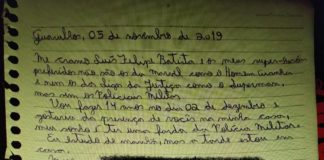 Guarulhos, 05 de novembro de 2019
Me chamo Luís Felipe Batista e os meus super-heróis
preferidos não são os da Marvel como o Homem Aranha
e nem os da Liga da Justiça como o Superman,
mas sim os Policiais Militares
Vou fazer 14 anos no dia 02 de dezembro e
gostaria da presença de vocês na minha casa,
meu sonho é ter uma farda da Polícia Militar.
Eu estudo de manhã, mas a tarde estou em
casa.